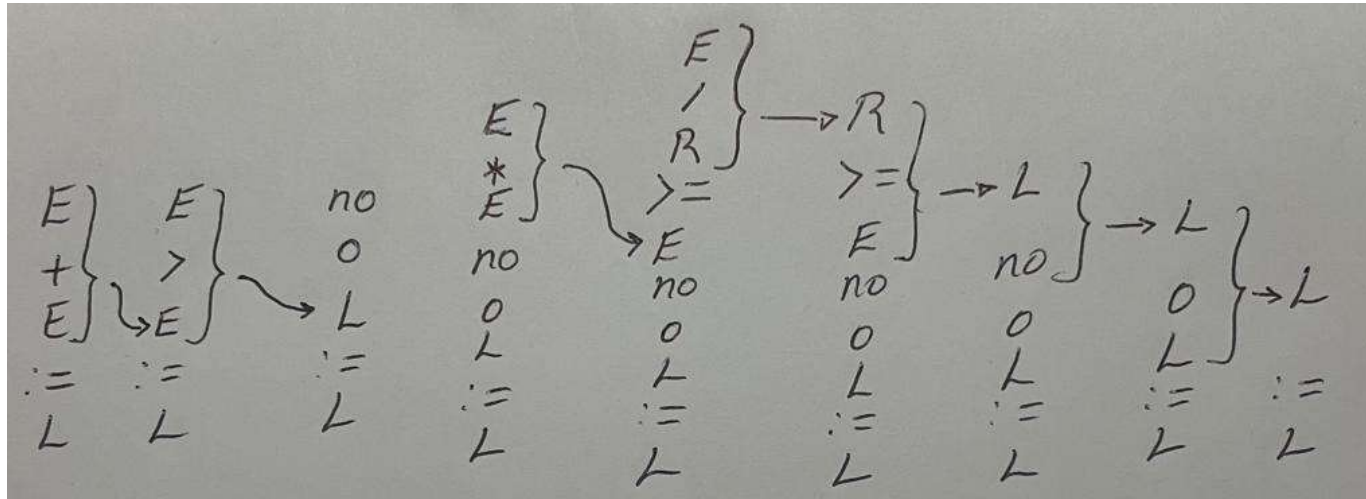 E
+
E
:=
L
E
>
E
:=
L
no
o
L
:=
L
E
*
E
no
o
L
:=
L
E
/
R
>=
E
no
o
L
:=
L
R
>=
E
no
o
L
:=
L
L
no
o
L
:=
L
L
o
L
:=
L
L
:=
L